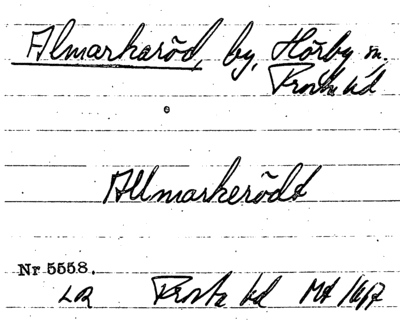 Almarkaröd, by, Hörby sn,
Frosta hd
Allmarkerödt
Nr 5558.
LR Frosta hd Mt